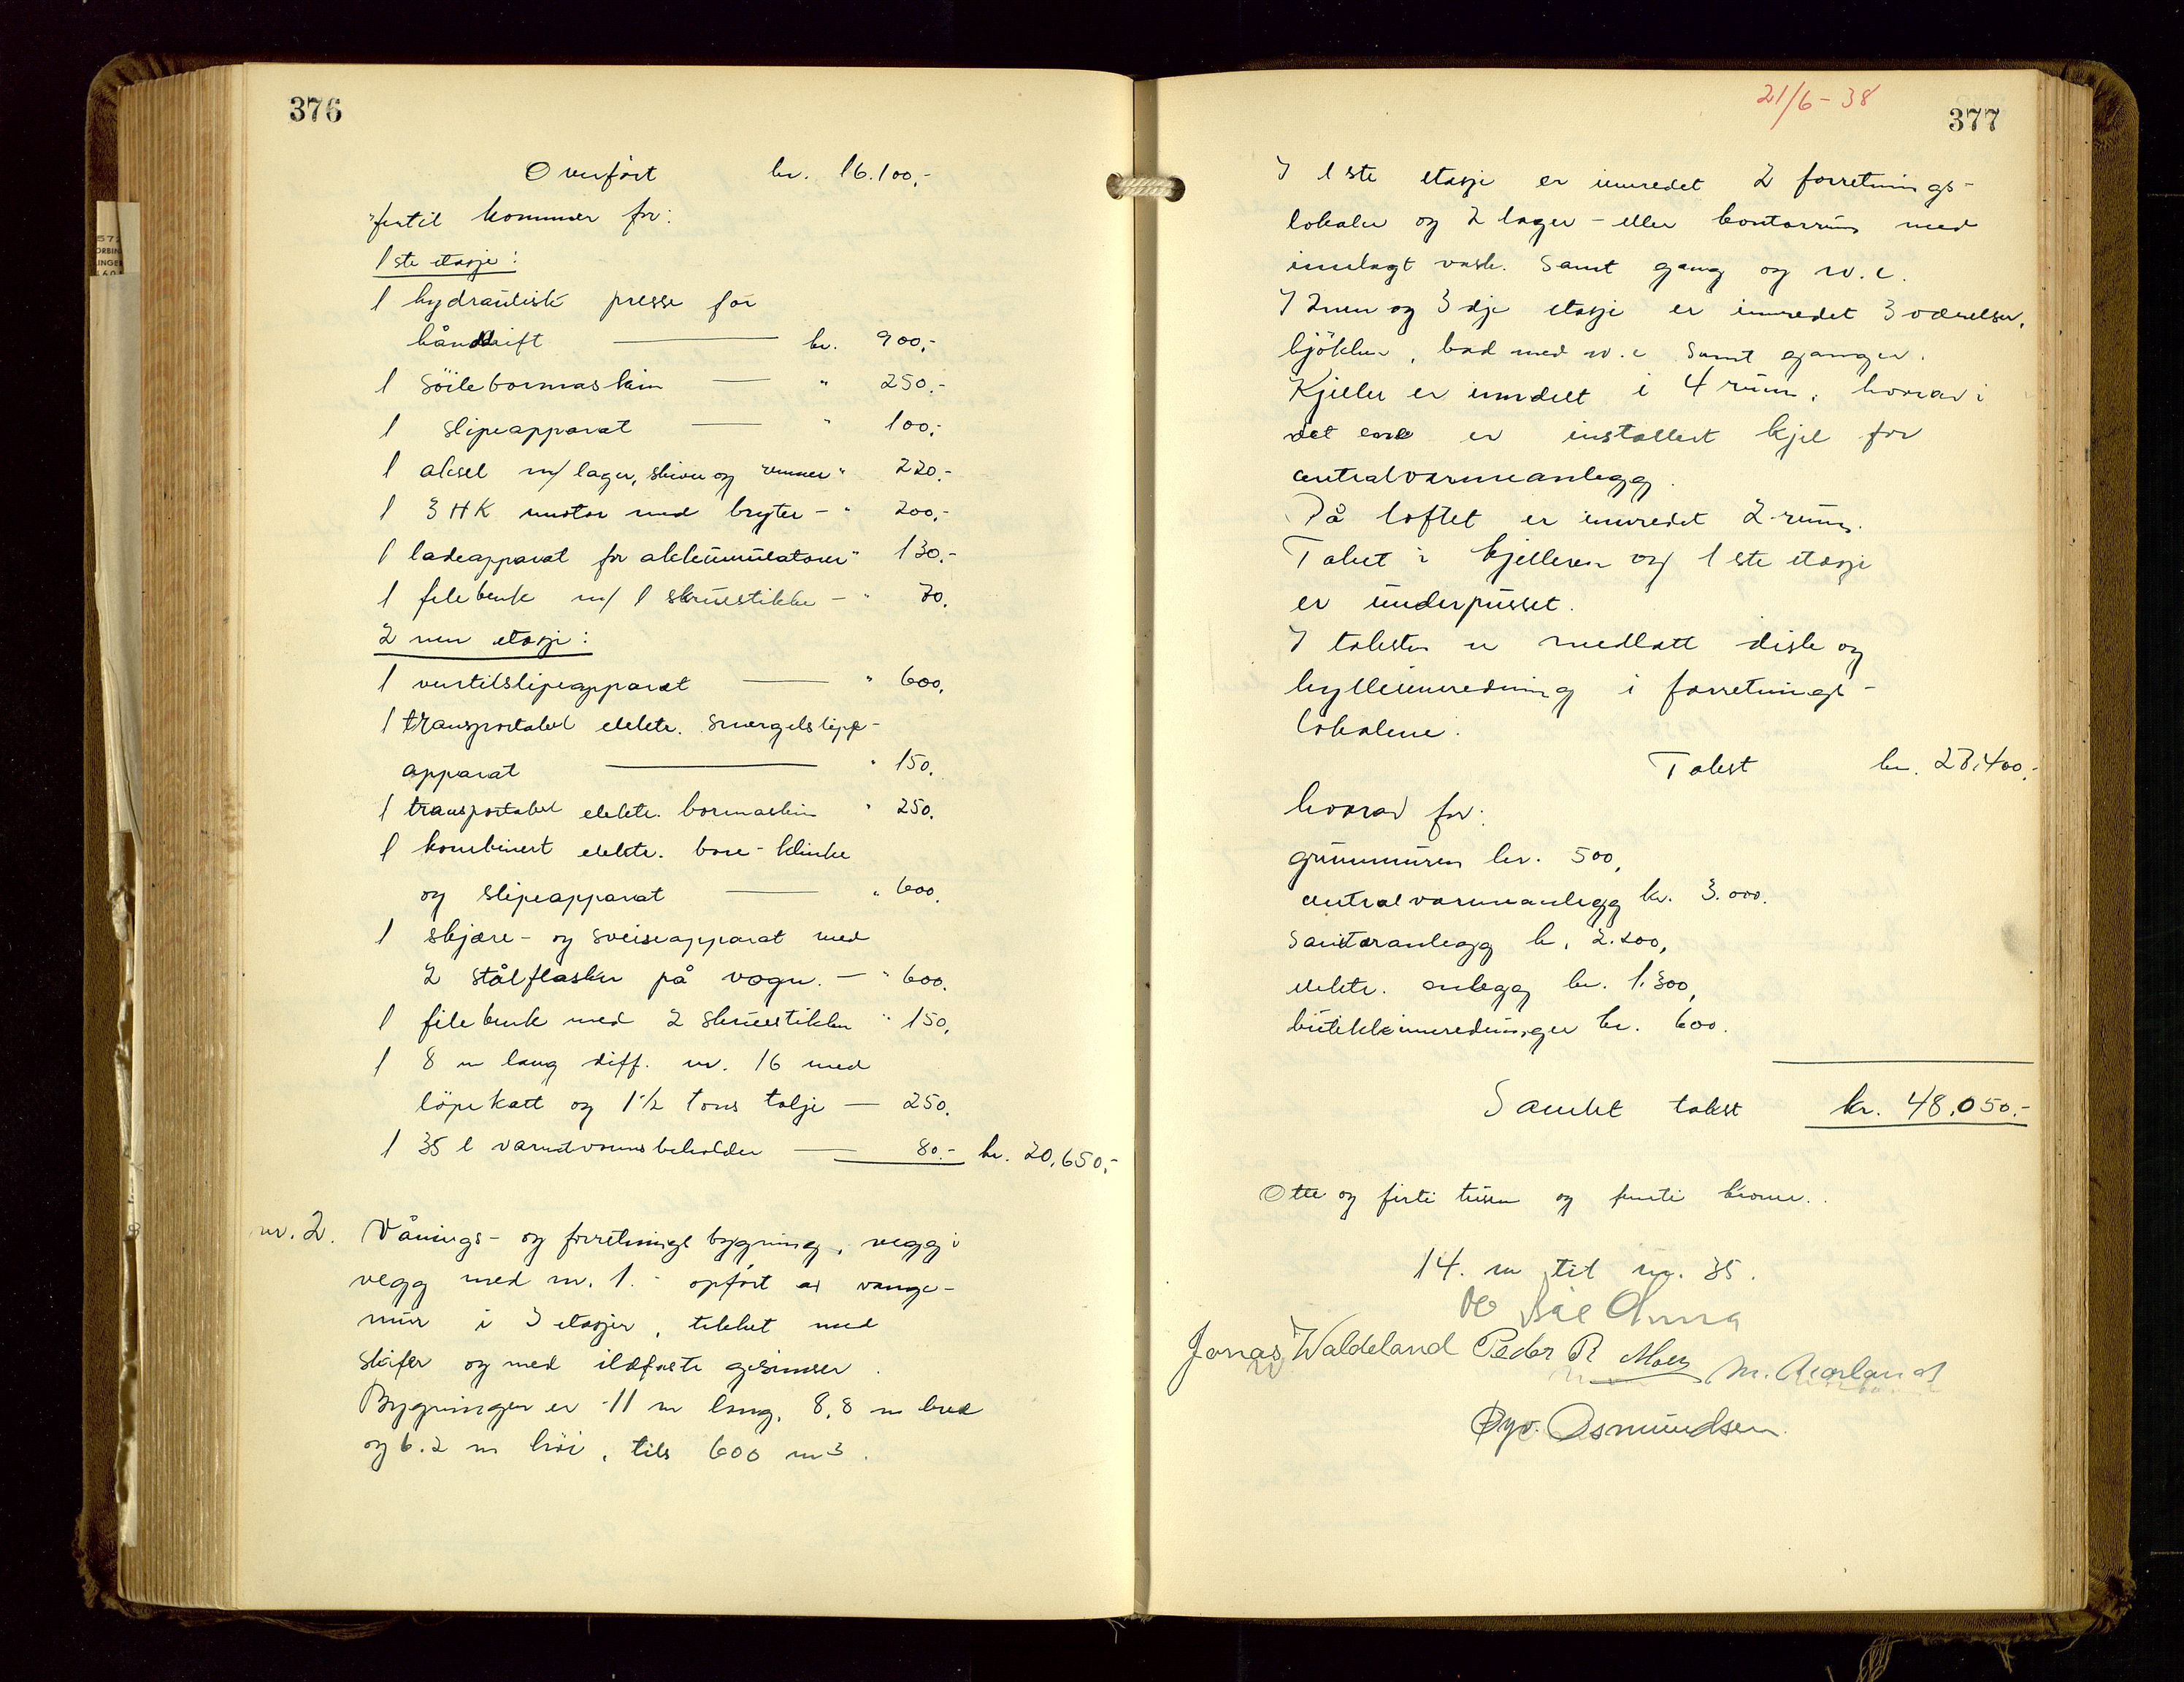 376
Overført kr. 16.100,-
hertil kommer for:
1 ste etasje:
1 hydraulisk presse for
hånddrift kr. 900,-
1 söilebormaskin " 250.-
1 slipeapparat " 100,-
1 aksel m/ lager, skiver og remmer " 220.-
1 3 HK motor med bryter - " 200,-
1 ladeapparat for akkumulatorer " 130.-
1 filebenk m/ 1 skruestikke - " 70.
2 nen etasje:
1 ventilslipeapparat " 600.
1 transportabel elektr. smergelslipe-
apparat " 150.
1 transportabel elektr. bormaskin " 250.
1 kombinert elektr. bore- klinke
og slipeapparat " 600.
1 skjære- og sveiseapparat med
2 stålflasker på vogn. - " 600.
1 filebenk med 2 skruestikker " 150.
1 8 m lang diff. nr. 16 med
löpekatt og 1 1/2 tons talje - 250.
1 35 l varmtvannsbeholder 80.- kr. 20.650,-
nr. 2. Vånings- og forretningsbygning, vegg i
vegg med nr. 1. - opført av vange-
mur i 3 etasjer, tekket med
skifer og med ildfaste gesimser.
Bygningen er 11 m lang, 8,8 m bred
og 6.2 m höi, tils 600 m3.
21/6-38
377
I 1 ste etasje er innredet 2 forretnings-
lokaler og 2 lager- eller kontorrum med
innlagt vask. Samt gang og w.c.
I 2nen og 3 dje etasje er innredet 3 værelser,
kjökken, bad med w.c samt ganger.
Kjeller er inndelt i 4 rum, hvorav i
det ene er installert kjel for
centralvarmeanlegg.
På loftet er innredet 2 rum.
Taket i kjelleren og 1 ste etasje
er underpusset.
I taksten er medtatt disk og
hylleinnredning i forretnings-
lokalene.
Takst kr. 27.400.-
hvorav for:
grunnmuren kr. 500,
centralvarmeanlegg kr. 3.000.
Sanitæranlegg kr. 2.200,
elektr. anlegg kr. 1.300,
butikkinnredninger kr. 600.
Samlet takst kr. 48.050.-
Otte og firti tusen og femti kroner.
14. m til nr. 35.
Jonas Waldeland Peder R Moen M. Aarland
Øyv. Asmundsen